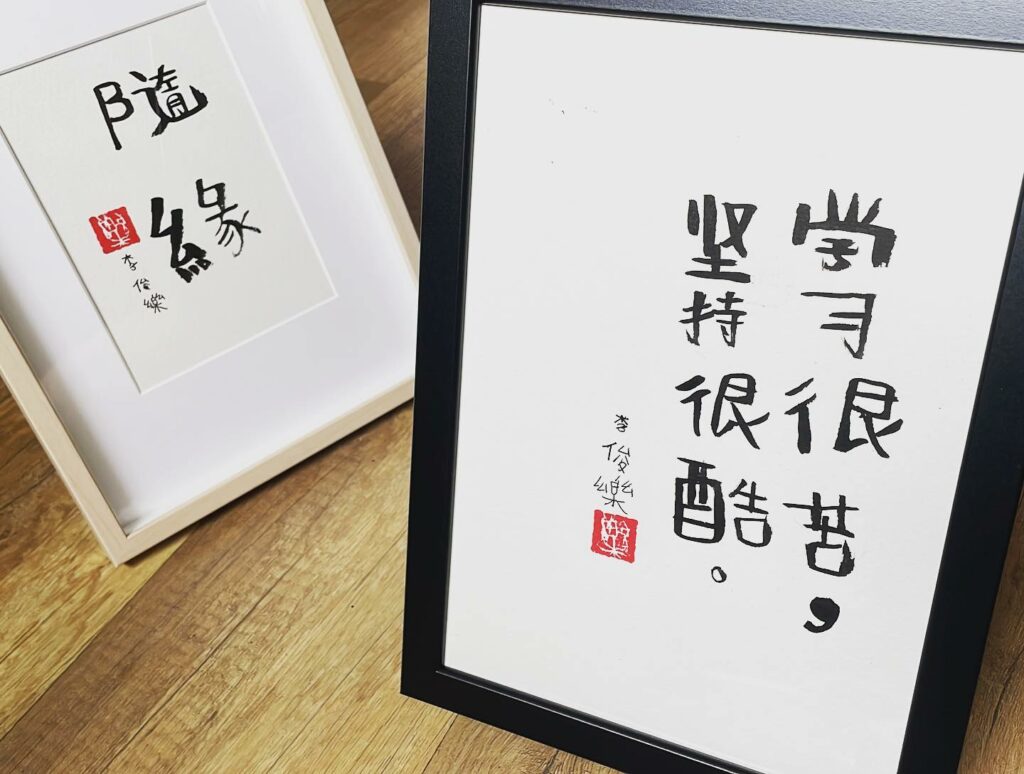 隨
緣
李俊樂
学习很苦，
坚持很酷。
李俊樂